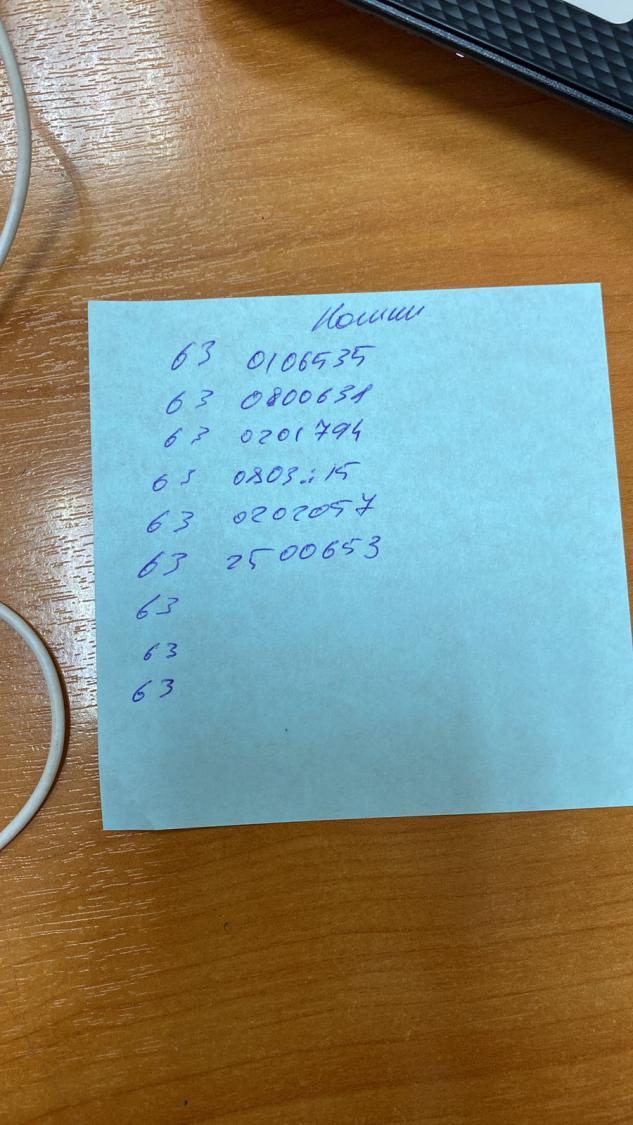 63 0106535
63 0800631
63 0201794
63 0803
63 0202057
63 2500653
63
63
63